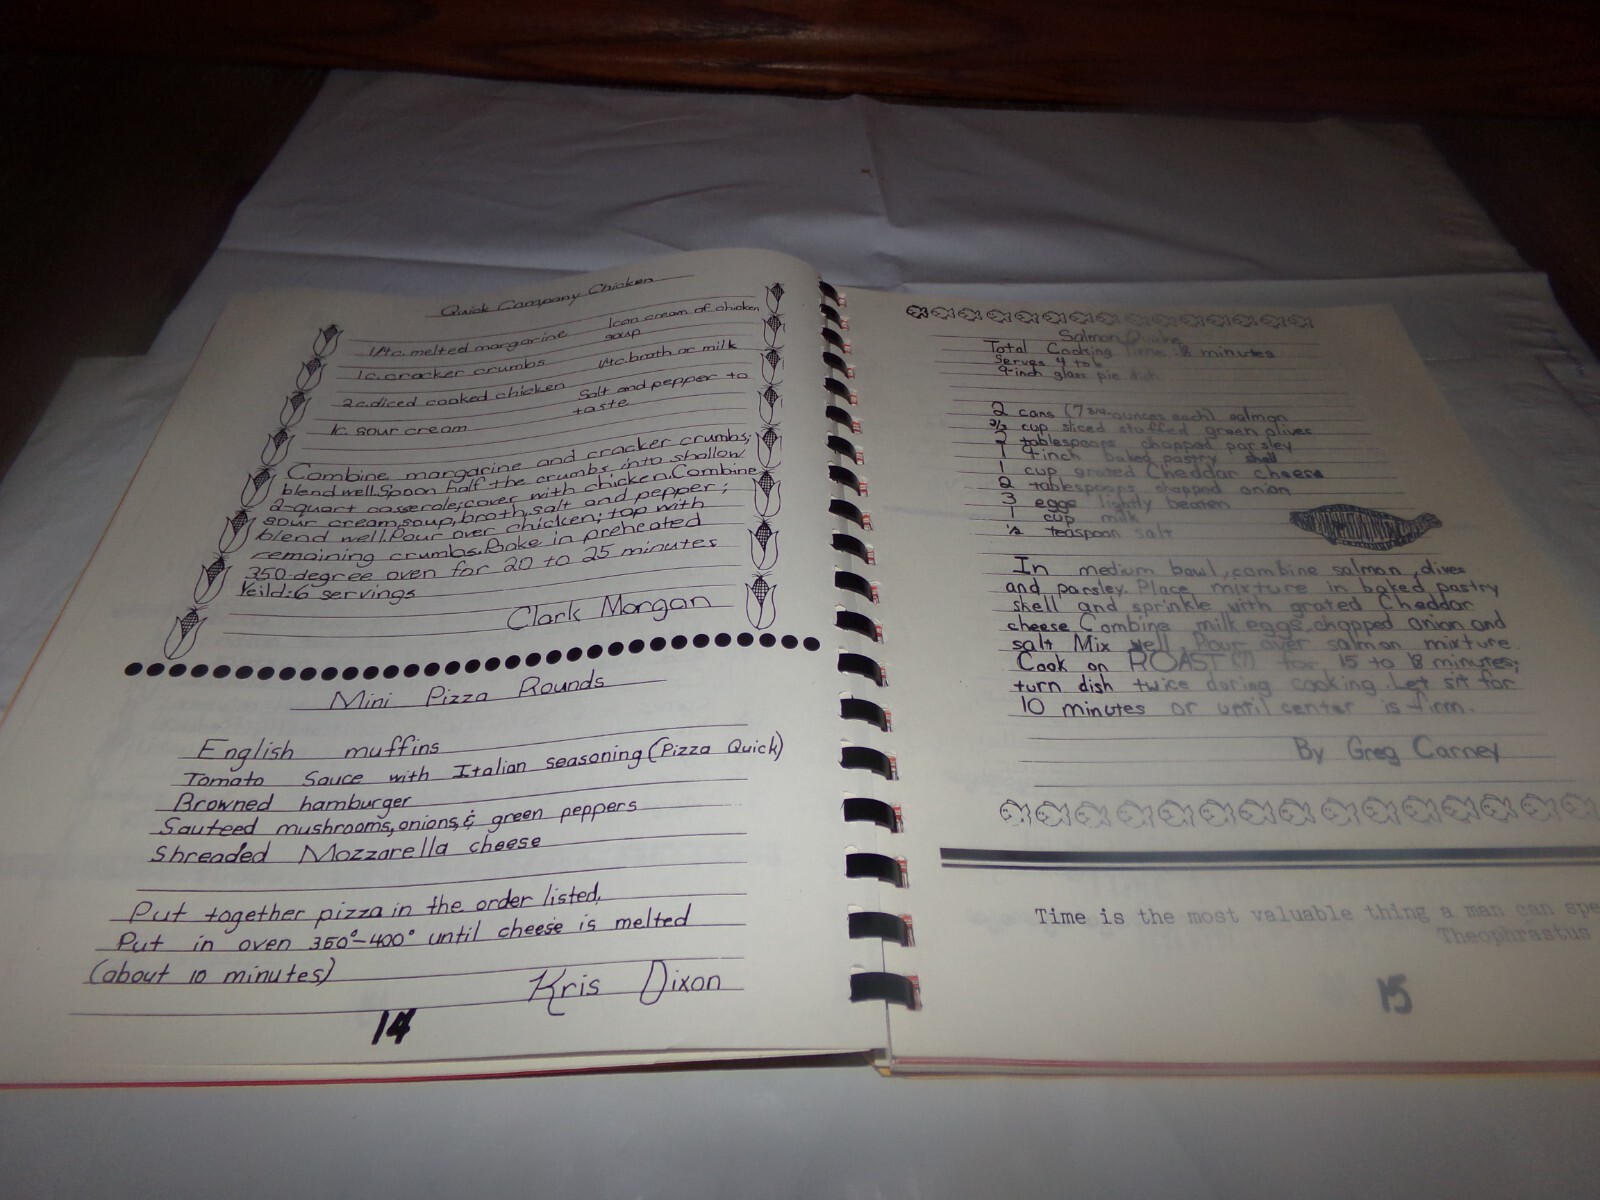 Quick Company Chicken
1/4 c. melted margarine 1 can cream of chicken soup
1 c. cracker crumbs 1/4 c. broth or milk
2 c. diced cooked chicken Salt and pepper to taste
1c. sour cream
Combine margarine and cracker crumbs;
blend well. Spoon half the crumbs into shallow
2-quart casserole; cover with chicken. Combine
sour cream, soup, broth, salt and pepper;
blend well. Pour over chicken; top with
remaining crumbs. Bake in preheated
350-degree oven for 20 to 25 minutes
Yeild: 6 servings
Clark Morgan
Mini Pizza Rounds
English muffins
Tomato Sauce with Italian seasoning (Pizza Quick)
Browned hamburger
Sauteed mushrooms, onions, & green peppers
Shreaded Mozzarella cheese
Put together pizza in the order listed.
Put in oven 350°-400° until cheese is melted
(about 10 minutes)
Kris Dixon
14
Salmon
Total Cooking Time: 18 minutes
Serves 4 to 6
9-inch glass pie dish
2 cans (7 3/4-ounces each) salmon
cup sliced stuffed green olives
2 tablespoons chopped parsley
1 9-inch baked pastry shell
1 cup grated Cheddar cheese
2 tablespoons chopped onion
3 eggs lightly beaten
1 cup milk
1/2 teaspoon salt
In medium bowl, combine salmon, olives
and parsley. Place mixture in baked pastry
shell and sprinkle with grated Cheddar
cheese Combine milk eggs, chopped onion and
salt Mix well. Pour over salmon mixture.
Cook on ROAST (7) for 15 to 18 minutes;
turn dish twice during cooking. Let sit for
10 minutes or until center is firm.
By Greg Carney
Time is the most valuable thing a man can spe
Theophrastus
15